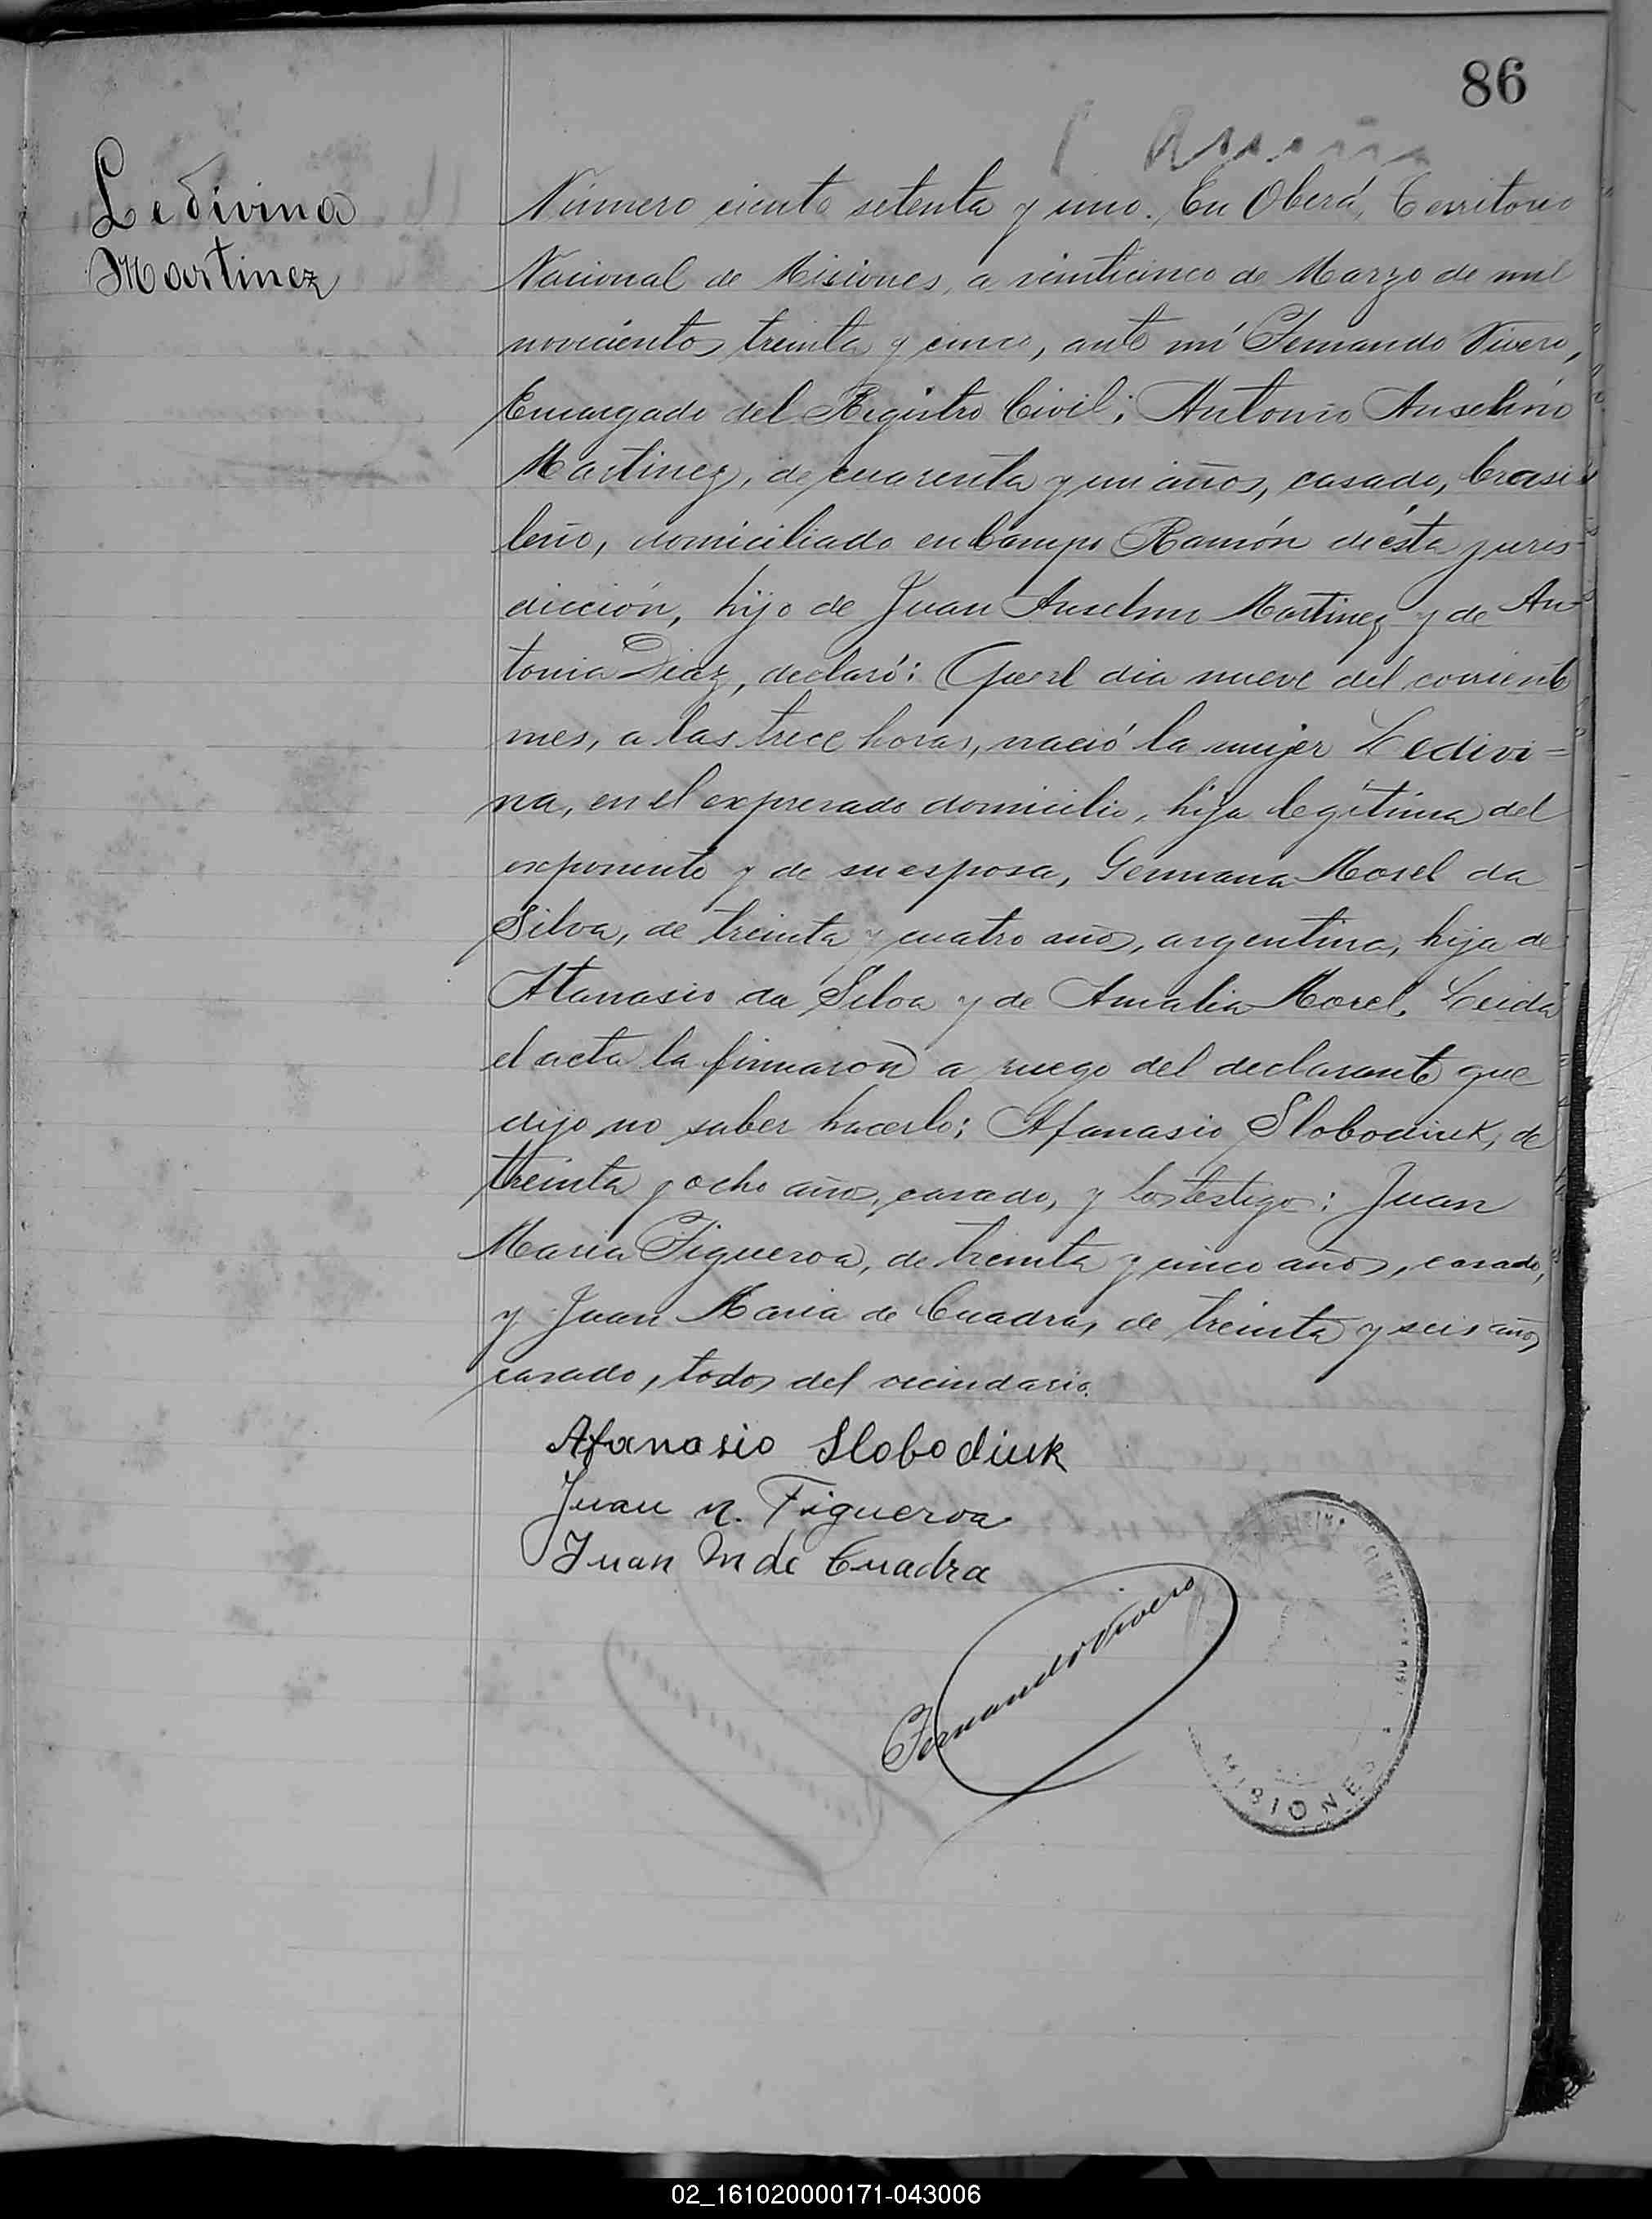 86
Ledivina
Martinez
Número ciento setenta y uno. En Oberá, Territorio
Nacional de Misiones, a veinticinco de Marzo de mil
novecientos treinta y cinco, ante mí Fernando Vivero,
Encargado del Registro Civil; Antonio Anselmo
Martinez, de cuarenta y un años, casado, brasi
leño, domiciliado en Campo Ramón de ésta juris
dicción, hijo de Juan Anselmo Martinez y de An
tonia Diaz, declaró: Que el dia nueve del corriente
mes, a las trece horas, nació la mujer Ledivi=
na, en el expresado domicilio, hija legítima del
exponente y de su esposa, Germana Morel da
Silva, de treinta y cuatro años, argentina, hija de
Atanasio da Silva y de Amalia Morel. Leida
el acta la firmaron a ruego del declarante que
dijo no saber hacerlo; Afanasio Slobodiuk, de
treinta y ocho años, casado, y los testigos: Juan
Maria Figueroa, de treinta y cinco años, casado,
y Juan Maria de Cuadra, de treinta y seis años
casado, todos del vecindario.
Afanasio Slobodiuk
Juan M. Figueroa
Juan M de Cuadra
Fernando Vivero
MISIONES
02_161020000171-043006